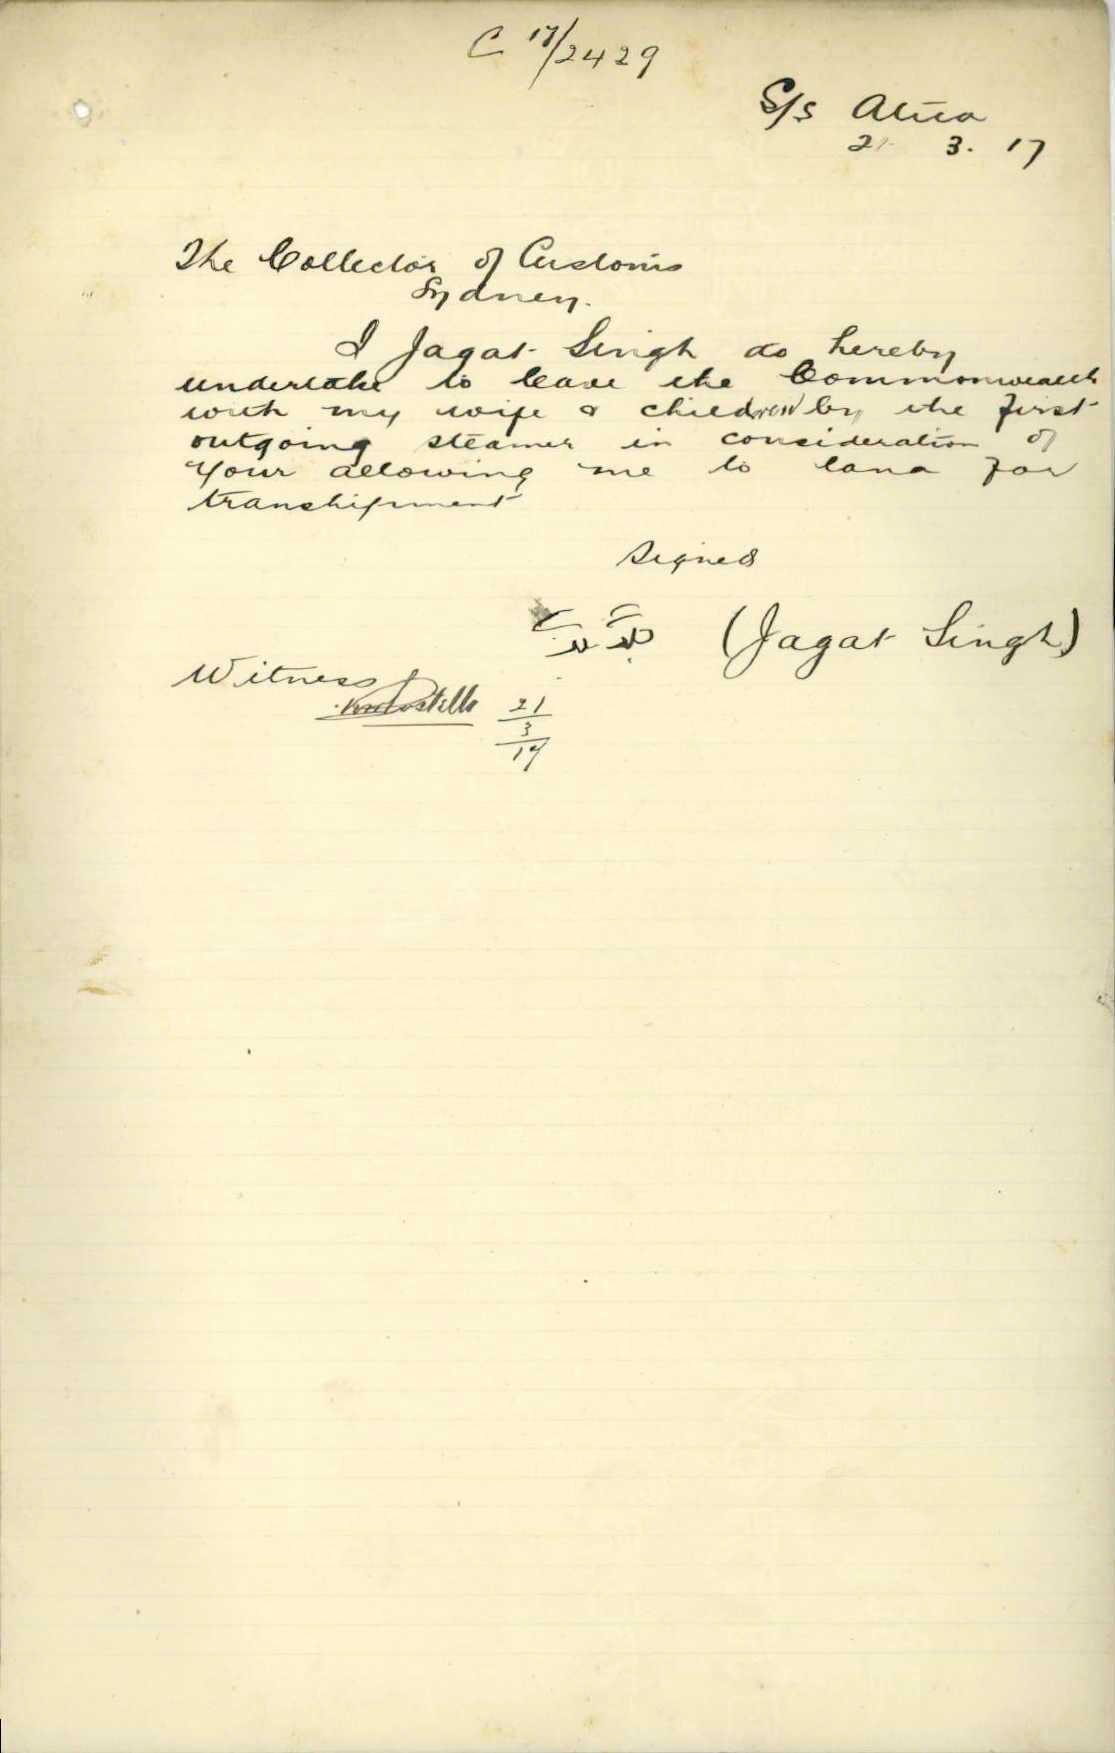 C 17/2429
S/S Atua
21 3. 17
The Collector of Customs
Sydney.
I Jagat Singh do hereby
undertake to leave the Commonwealth
with my wife & children by the first
outgoing steamer in consideration of
your allowing me to land for
transhipment
Signed
(Jagat Singh)
Witness
21
3
17